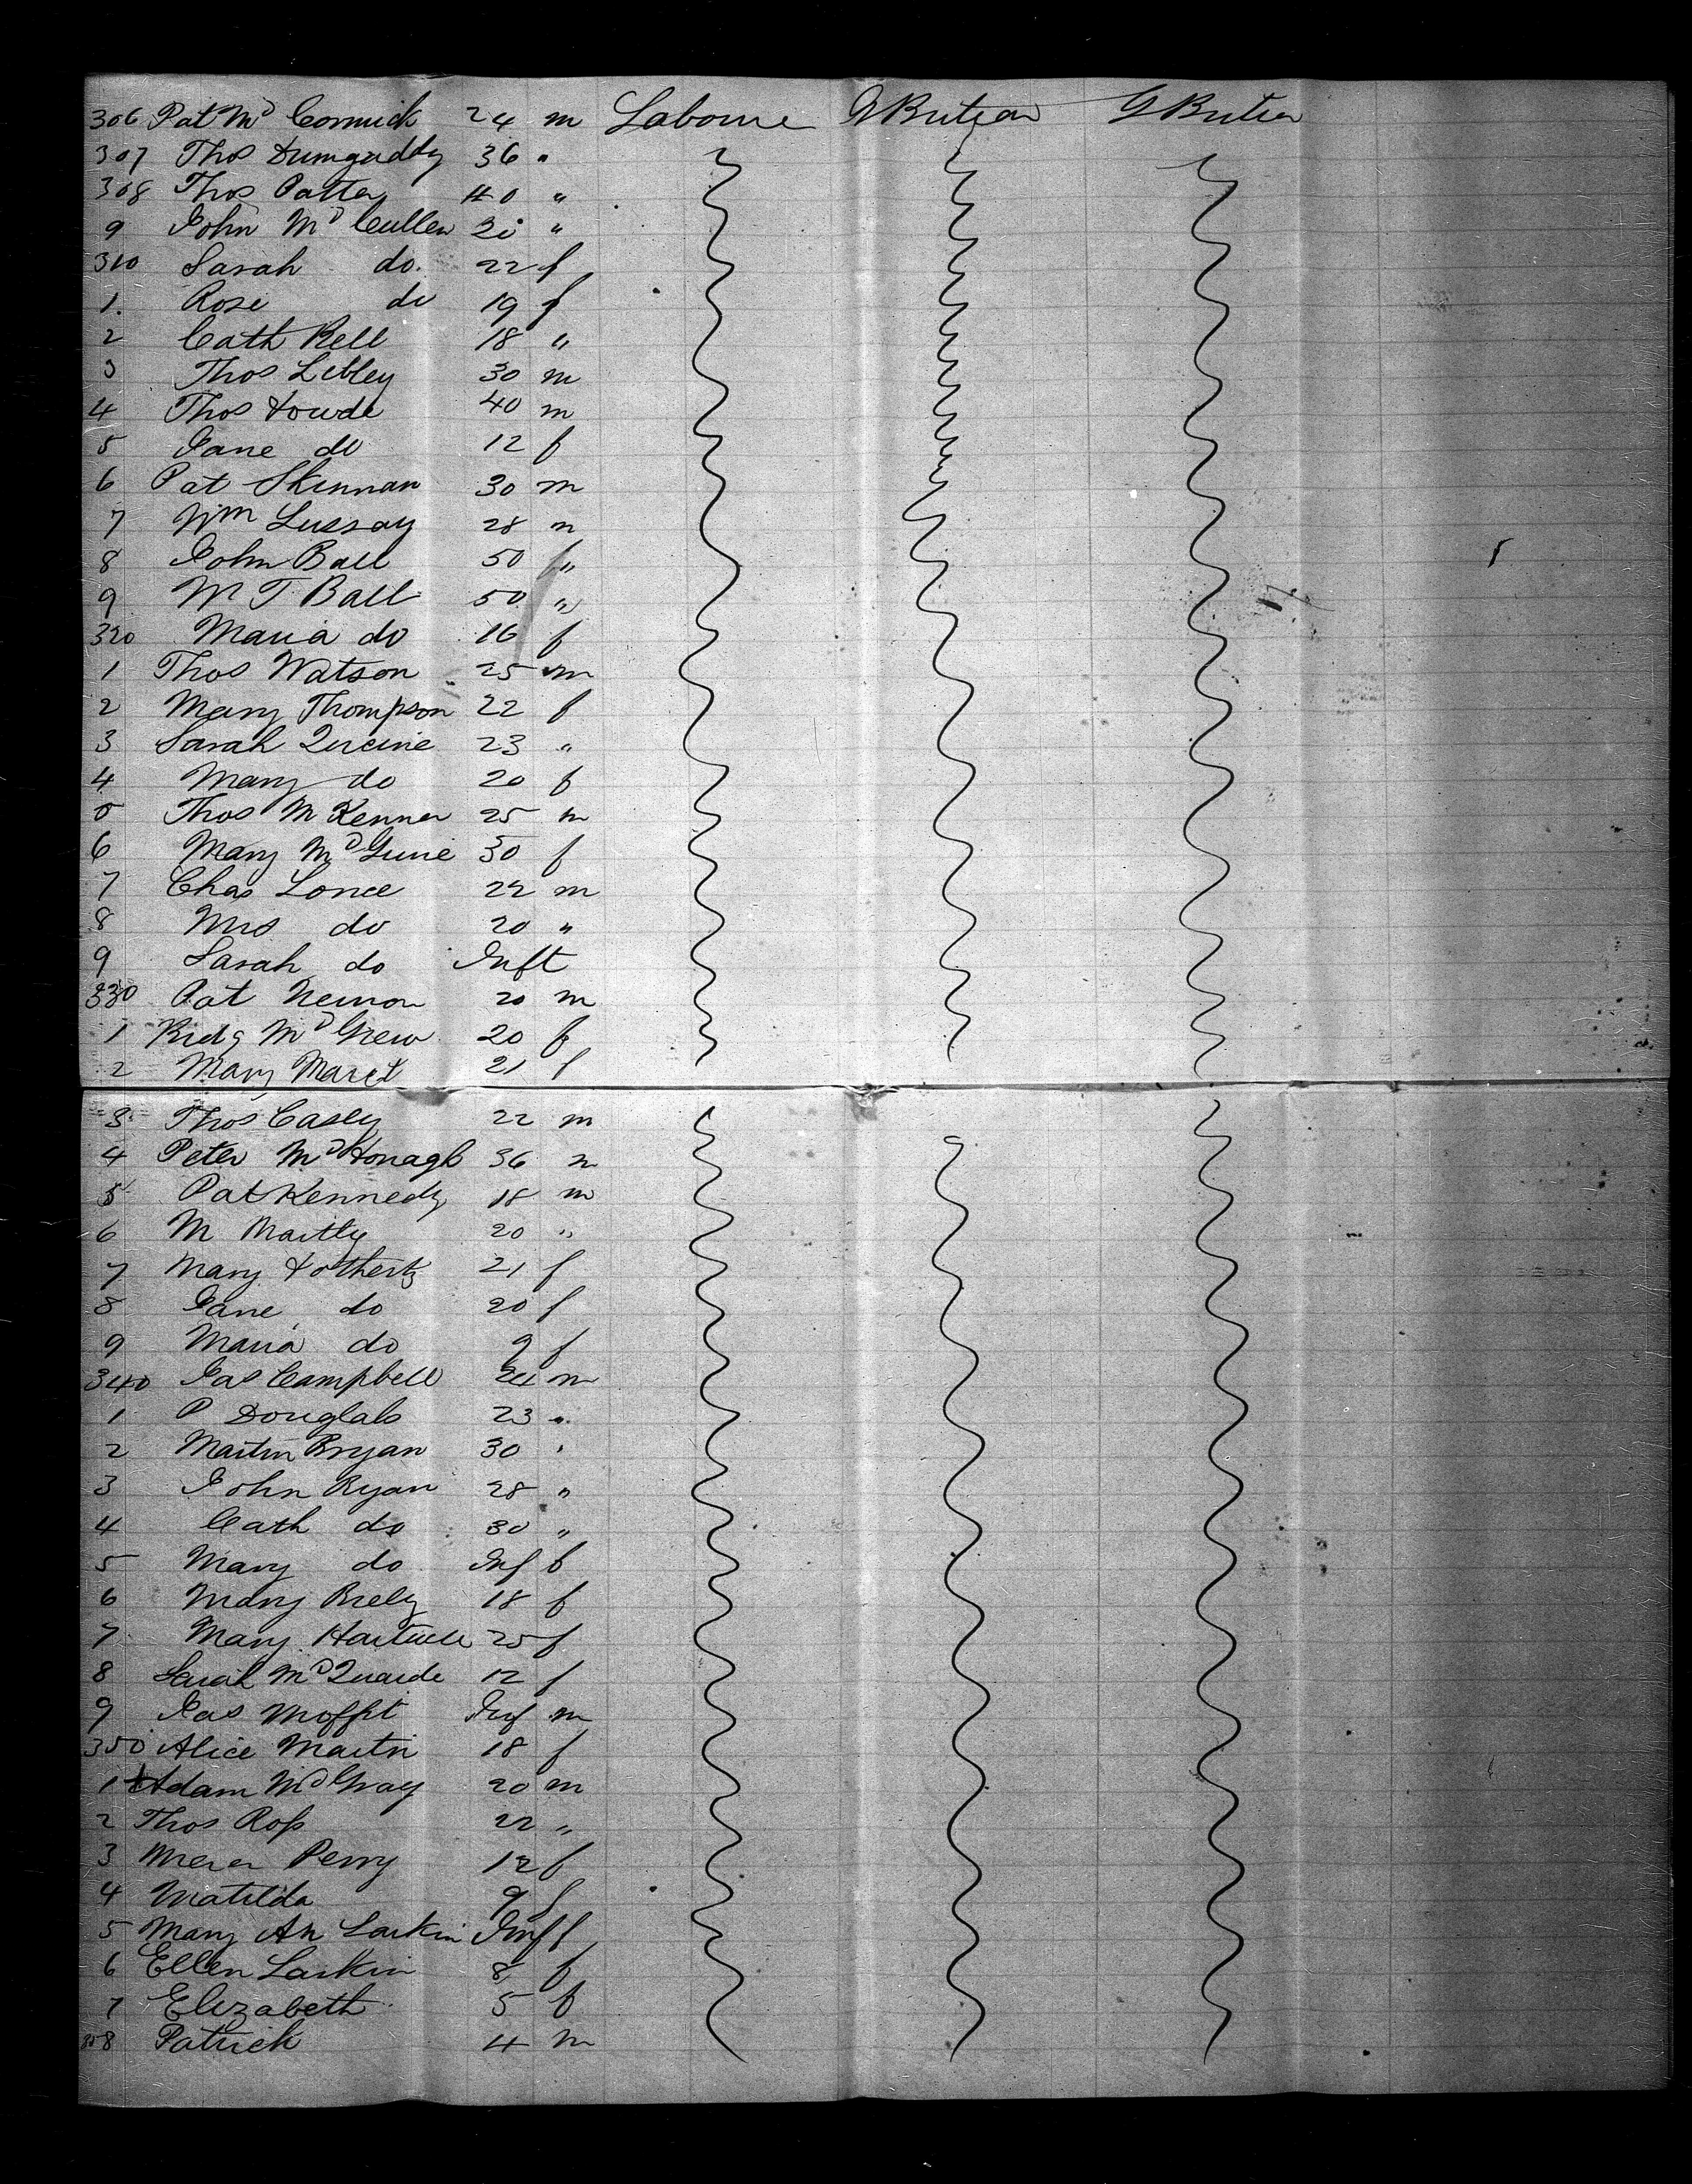 306 Pat McCormick 24 m Laboure G Britian G Britian
307 Thos Dumguddy 36 "
308 Thos Patten 40 "
9 John McCullen 20 "
310 Sarah do. 22 f
1. Rose do 19 f
2 Cath Kell 18 "
3 Thos Libley 30 m
4 Thos 40 m
5 Jane do 12 f
6 Pat Skinnan 30 m
7 Wm Lussay 28 m
8 John Ball 50 "
9 M T Ball 50 "
320 Maria do 16 f
1 Thos Watson 25 m
2 Mary Thompson 22 f
3 Sarah 23 "
4 Mary do 20 f
5 Thos McKenner 25 m
6 Mary McGuire 30 f
7 Chas Lonce 22 m
8 Mrs do 20 "
9 Sarah do Inft
330 Pat 20 m
1 Bidg McGrew 20 f
2 Mary 21 f
3 Thos Casey 22 m
4 Peter McDonagh 36 m
5 Pat Kennedy 18 m
6 M Martly 20 "
7 Mary 21 f
8 Jane do 20 f
9 Maria do 9 f
340 Jas Campbell 24 m
1 P Douglass 23 "
2 Martin Bryan 30 "
3 John Ryan 28 "
4 Cath do 30 "
5 Mary do Inf f
6 Mary Riely 18 f
7 Mary 25 f
8 Sarah McQuade 12 f
9 Jas Moffit Inf m
350 Alice Martin 18 f
1 Adam McGray 20 m
2 Thos Ross 22 "
3 Perry 12 f
4 Matilda 9 f
5 Mary An Larkin Inf f
6 Ellen Larkin 8 f
7 Elizabeth 5 f
358 Patrick 4 m